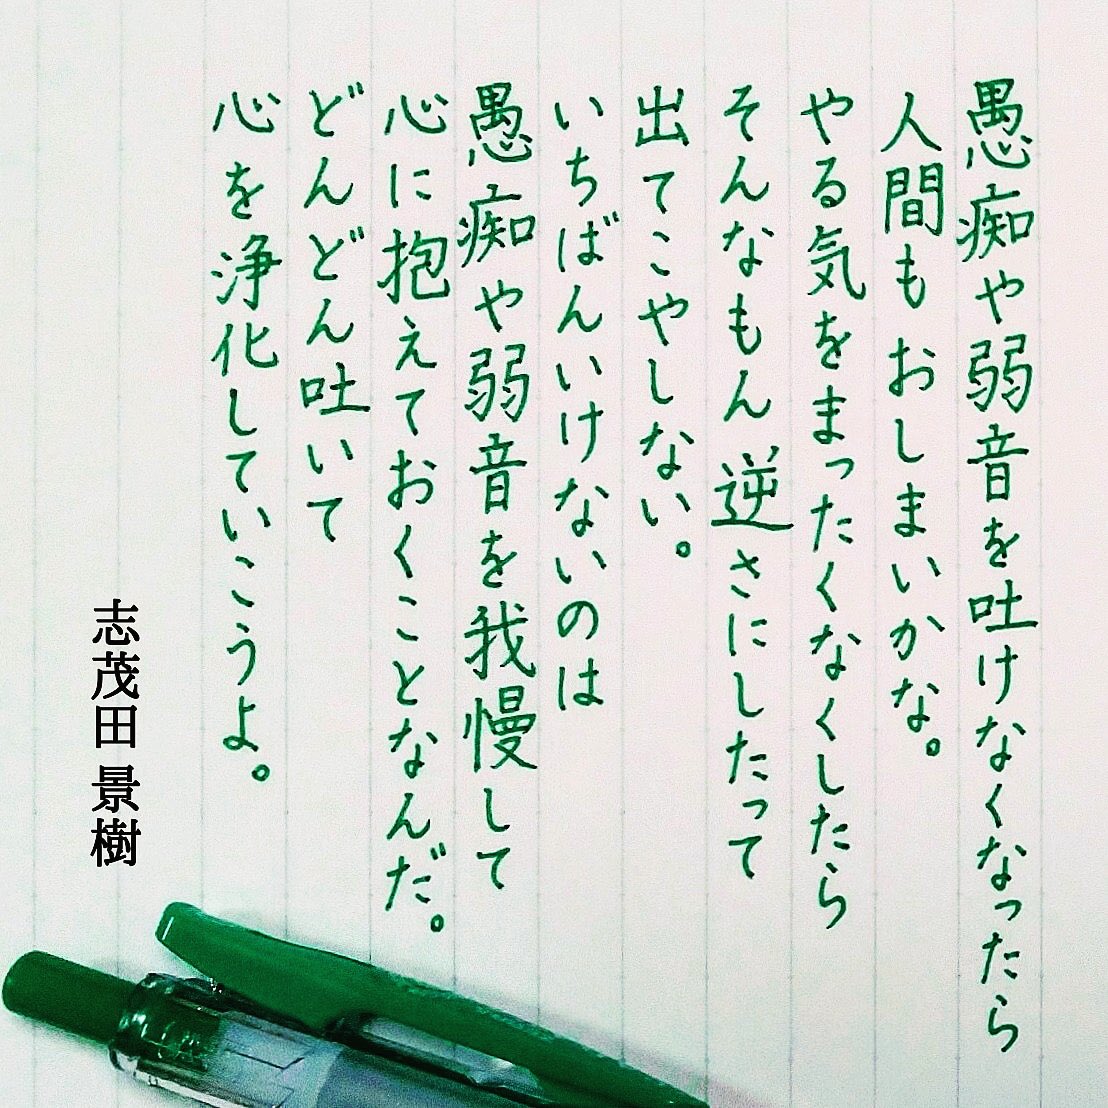 愚痴や弱音を吐けなくなったら
人間もおしまいかな。
やる気をまったくなくしたら
そんなもん逆さにしたって
出てこやしない。
いちばんいけないのは
愚痴や弱音を我慢して
心に抱えておくことなんだ。
どんどん吐いて
心を浄化していこうよ。
志茂田 景樹